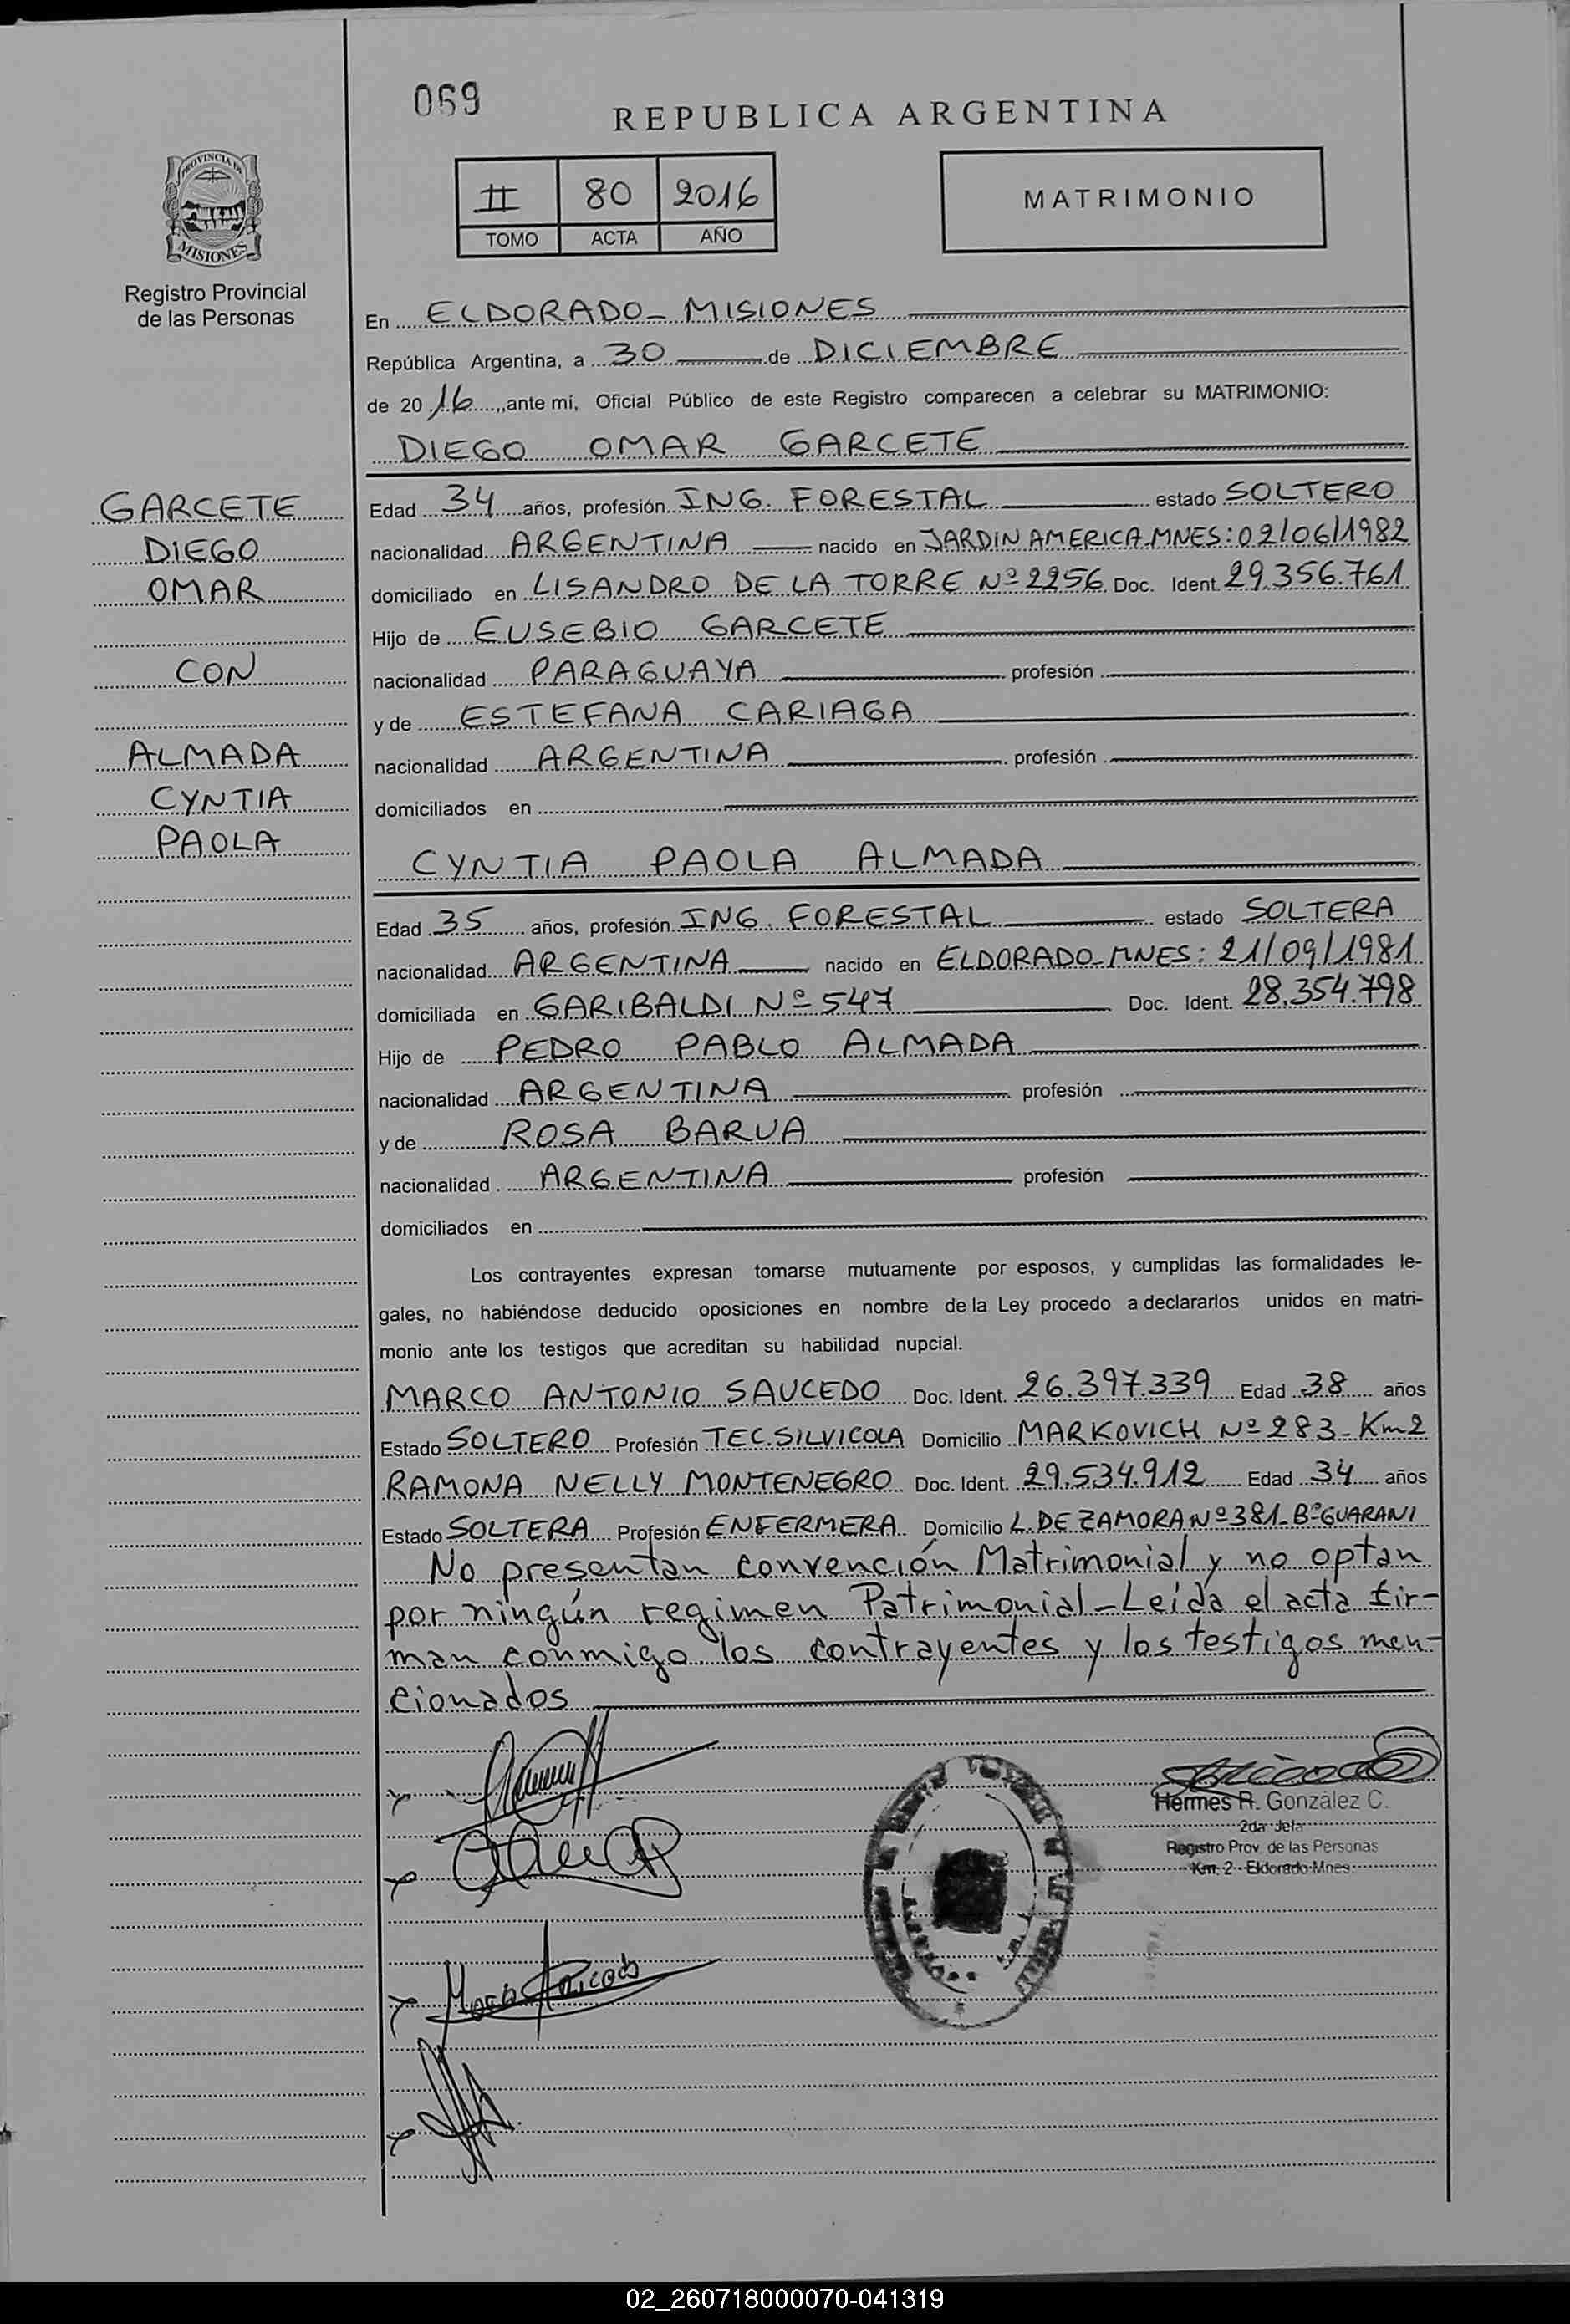 069
REPUBLICA ARGENTINA
PROVINCIA DE
MISIONES
Registro Provincial
de las Personas
II 80 2016
TOMO ACTA AÑO
MATRIMONIO
En ELDORADO - MISIONES
República Argentina, a 30 de DICIEMBRE
de 20 16, ante mí, Oficial Público de este Registro comparecen a celebrar su MATRIMONIO:
DIEGO OMAR GARCETE
GARCETE
DIEGO
OMAR
CON
ALMADA
CYNTIA
PAOLA
Edad 34 años, profesión ING. FORESTAL estado SOLTERO
nacionalidad ARGENTINA nacido en JARDIN AMERICA-MNES: 02/06/1982
domiciliado en LISANDRO DE LA TORRE Nº 2256 Doc. Ident. 29.356.761
Hijo de EUSEBIO GARCETE
nacionalidad PARAGUAYA profesión
y de ESTEFANA CARIAGA
nacionalidad ARGENTINA profesión
domiciliados en
CYNTIA PAOLA ALMADA
Edad 35 años, profesión ING. FORESTAL estado SOLTERA
nacionalidad ARGENTINA nacido en ELDORADO-MNES: 21/09/1981
domiciliada en GARIBALDI Nº 547 Doc. Ident. 28.354.798
Hijo de PEDRO PABLO ALMADA
nacionalidad ARGENTINA profesión
y de ROSA BARUA
nacionalidad ARGENTINA profesión
domiciliados en
Los contrayentes expresan tomarse mutuamente por esposos, y cumplidas las formalidades le-
gales, no habiéndose deducido oposiciones en nombre de la Ley procedo a declararlos unidos en matri-
monio ante los testigos que acreditan su habilidad nupcial.
MARCO ANTONIO SAUCEDO Doc. Ident. 26.397.339 Edad 38 años
Estado SOLTERO Profesión TEC. SILVICOLA Domicilio MARKOVICH Nº 283 - Km2
RAMONA NELLY MONTENEGRO Doc. Ident. 29.534.912 Edad 34 años
Estado SOLTERA Profesión ENFERMERA Domicilio L. DE ZAMORA Nº 381 - Bº GUARANI
No presentan convención Matrimonial y no optan
por ningún regimen Patrimonial - Leída el acta fir-
man conmigo los contrayentes y los testigos men-
cionados
Hermes R. González C.
2da Jefa
Registro Prov. de las Personas
Km. 2 - Eldorado Mnes
02_260718000070-041319